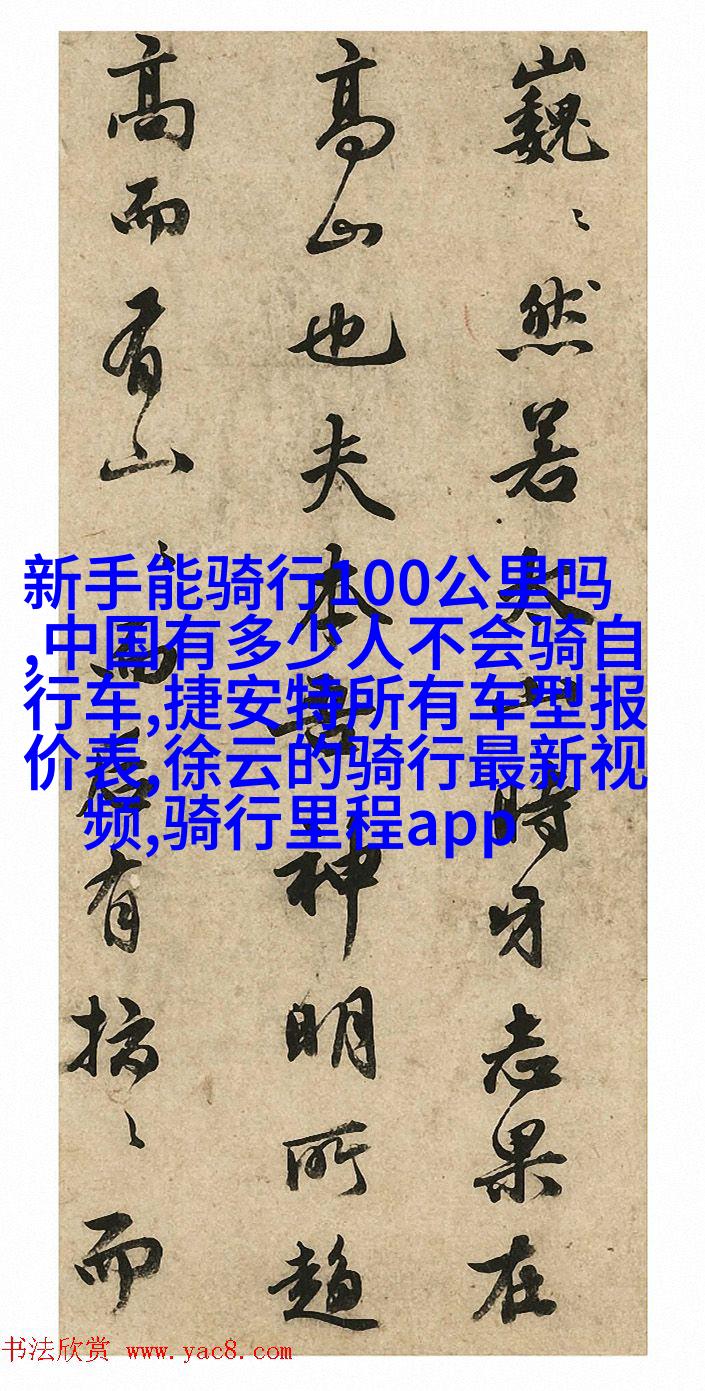 巍〻然若太山時牙志果在
高山也夫本吾神明所趨
高而有山〻而有〻而
新手能骑行100公里吗
,中国有多少人不会骑自
行车,捷安特所有车型报
价表,徐云的骑行最新视
频,骑行里程app
书法欣赏 www.yac8.com